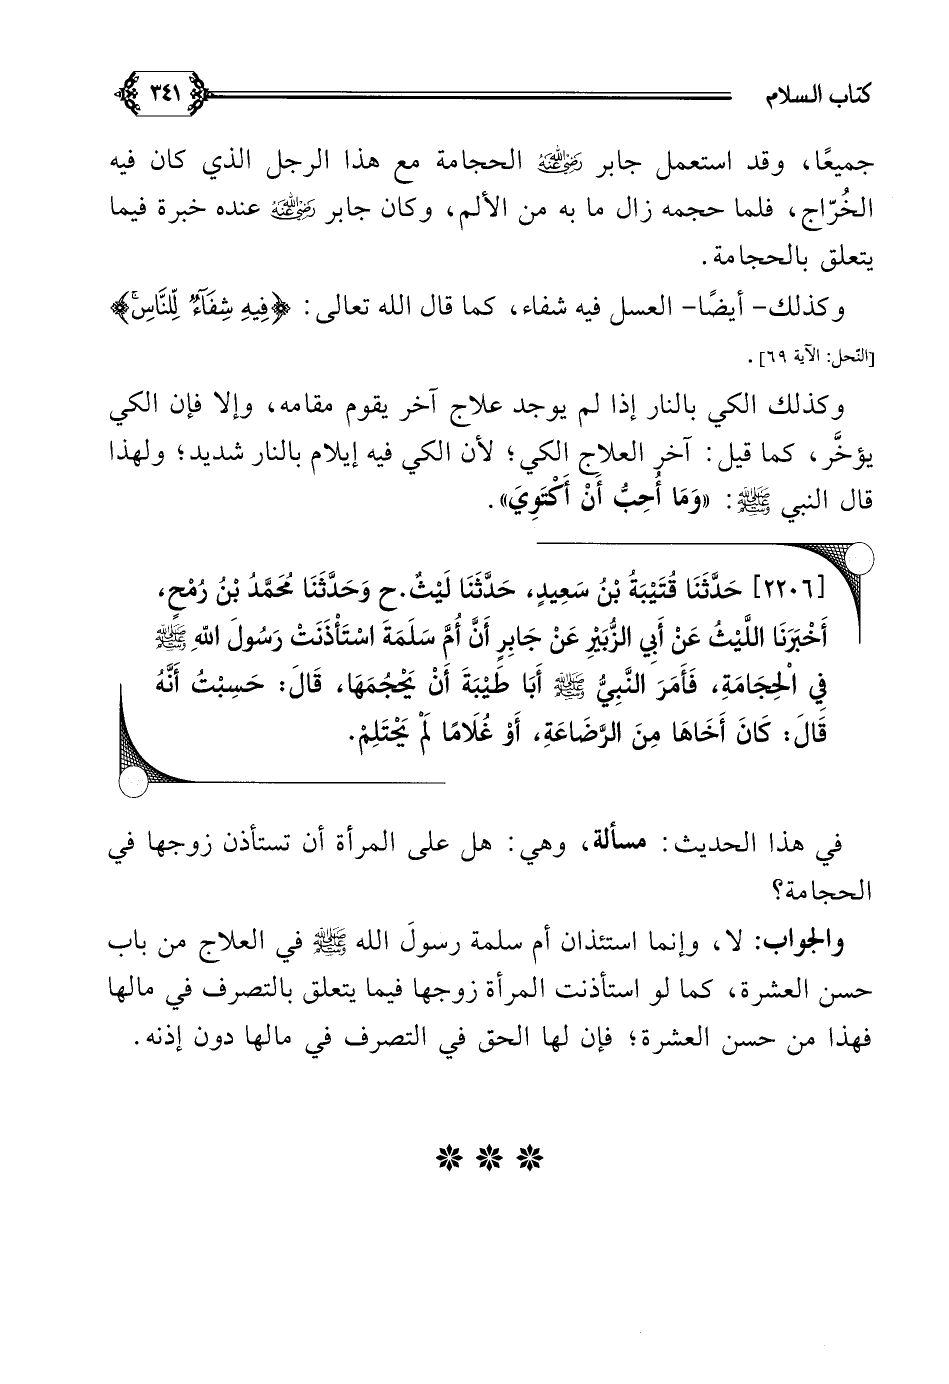 كتاب السلام ٣٤١
جميعًا، وقد استعمل جابر رضي الله عنه الحجامة مع هذا الرجل الذي كان فيه
الخُرّاج، فلما حجمه زال ما به من الألم، وكان جابر رضي الله عنه عنده خبرة فيما
يتعلق بالحجامة.
وكذلك- أيضًا- العسل فيه شفاء، كما قال الله تعالى: ﴿فِيهِ شِفَآءٞ لِّلنَّاسِۚ﴾
[النّحل: الآية ٦٩].
وكذلك الكي بالنار إذا لم يوجد علاج آخر يقوم مقامه، وإلا فإن الكي
يؤخَّر، كما قيل: آخر العلاج الكي؛ لأن الكي فيه إيلام بالنار شديد؛ ولهذا
قال النبي ﷺ: «وَمَا أُحِبُّ أَنْ أَكْتَوِيَ».
[٢٢٠٦] حَدَّثَنَا قُتَيْبَةُ بْنُ سَعِيدٍ، حَدَّثَنَا لَيْثٌ.ح وَحَدَّثَنَا مُحَمَّدُ بْنُ رُمْحٍ،
أَخْبَرَنَا اللَّيْثُ عَنْ أَبِي الزُّبَيْرِ عَنْ جَابِرٍ أَنَّ أُمَّ سَلَمَةَ اسْتَأْذَنَتْ رَسُولَ اللهِ ﷺ
فِي الْحِجَامَةِ، فَأَمَرَ النَّبِيُّ ﷺ أَبَا طَيْبَةَ أَنْ يَحْجُمَهَا، قَالَ: حَسِبْتُ أَنَّهُ
قَالَ: كَانَ أَخَاهَا مِنَ الرَّضَاعَةِ، أَوْ غُلَامًا لَمْ يَحْتَلِمْ.
في هذا الحديث: مسألة، وهي: هل على المرأة أن تستأذن زوجها في
الحجامة؟
والجواب: لا، وإنما استئذان أم سلمة رسولَ الله ﷺ في العلاج من باب
حسن العشرة، كما لو استأذنت المرأة زوجها فيما يتعلق بالتصرف في مالها
فهذا من حسن العشرة؛ فإن لها الحق في التصرف في مالها دون إذنه.